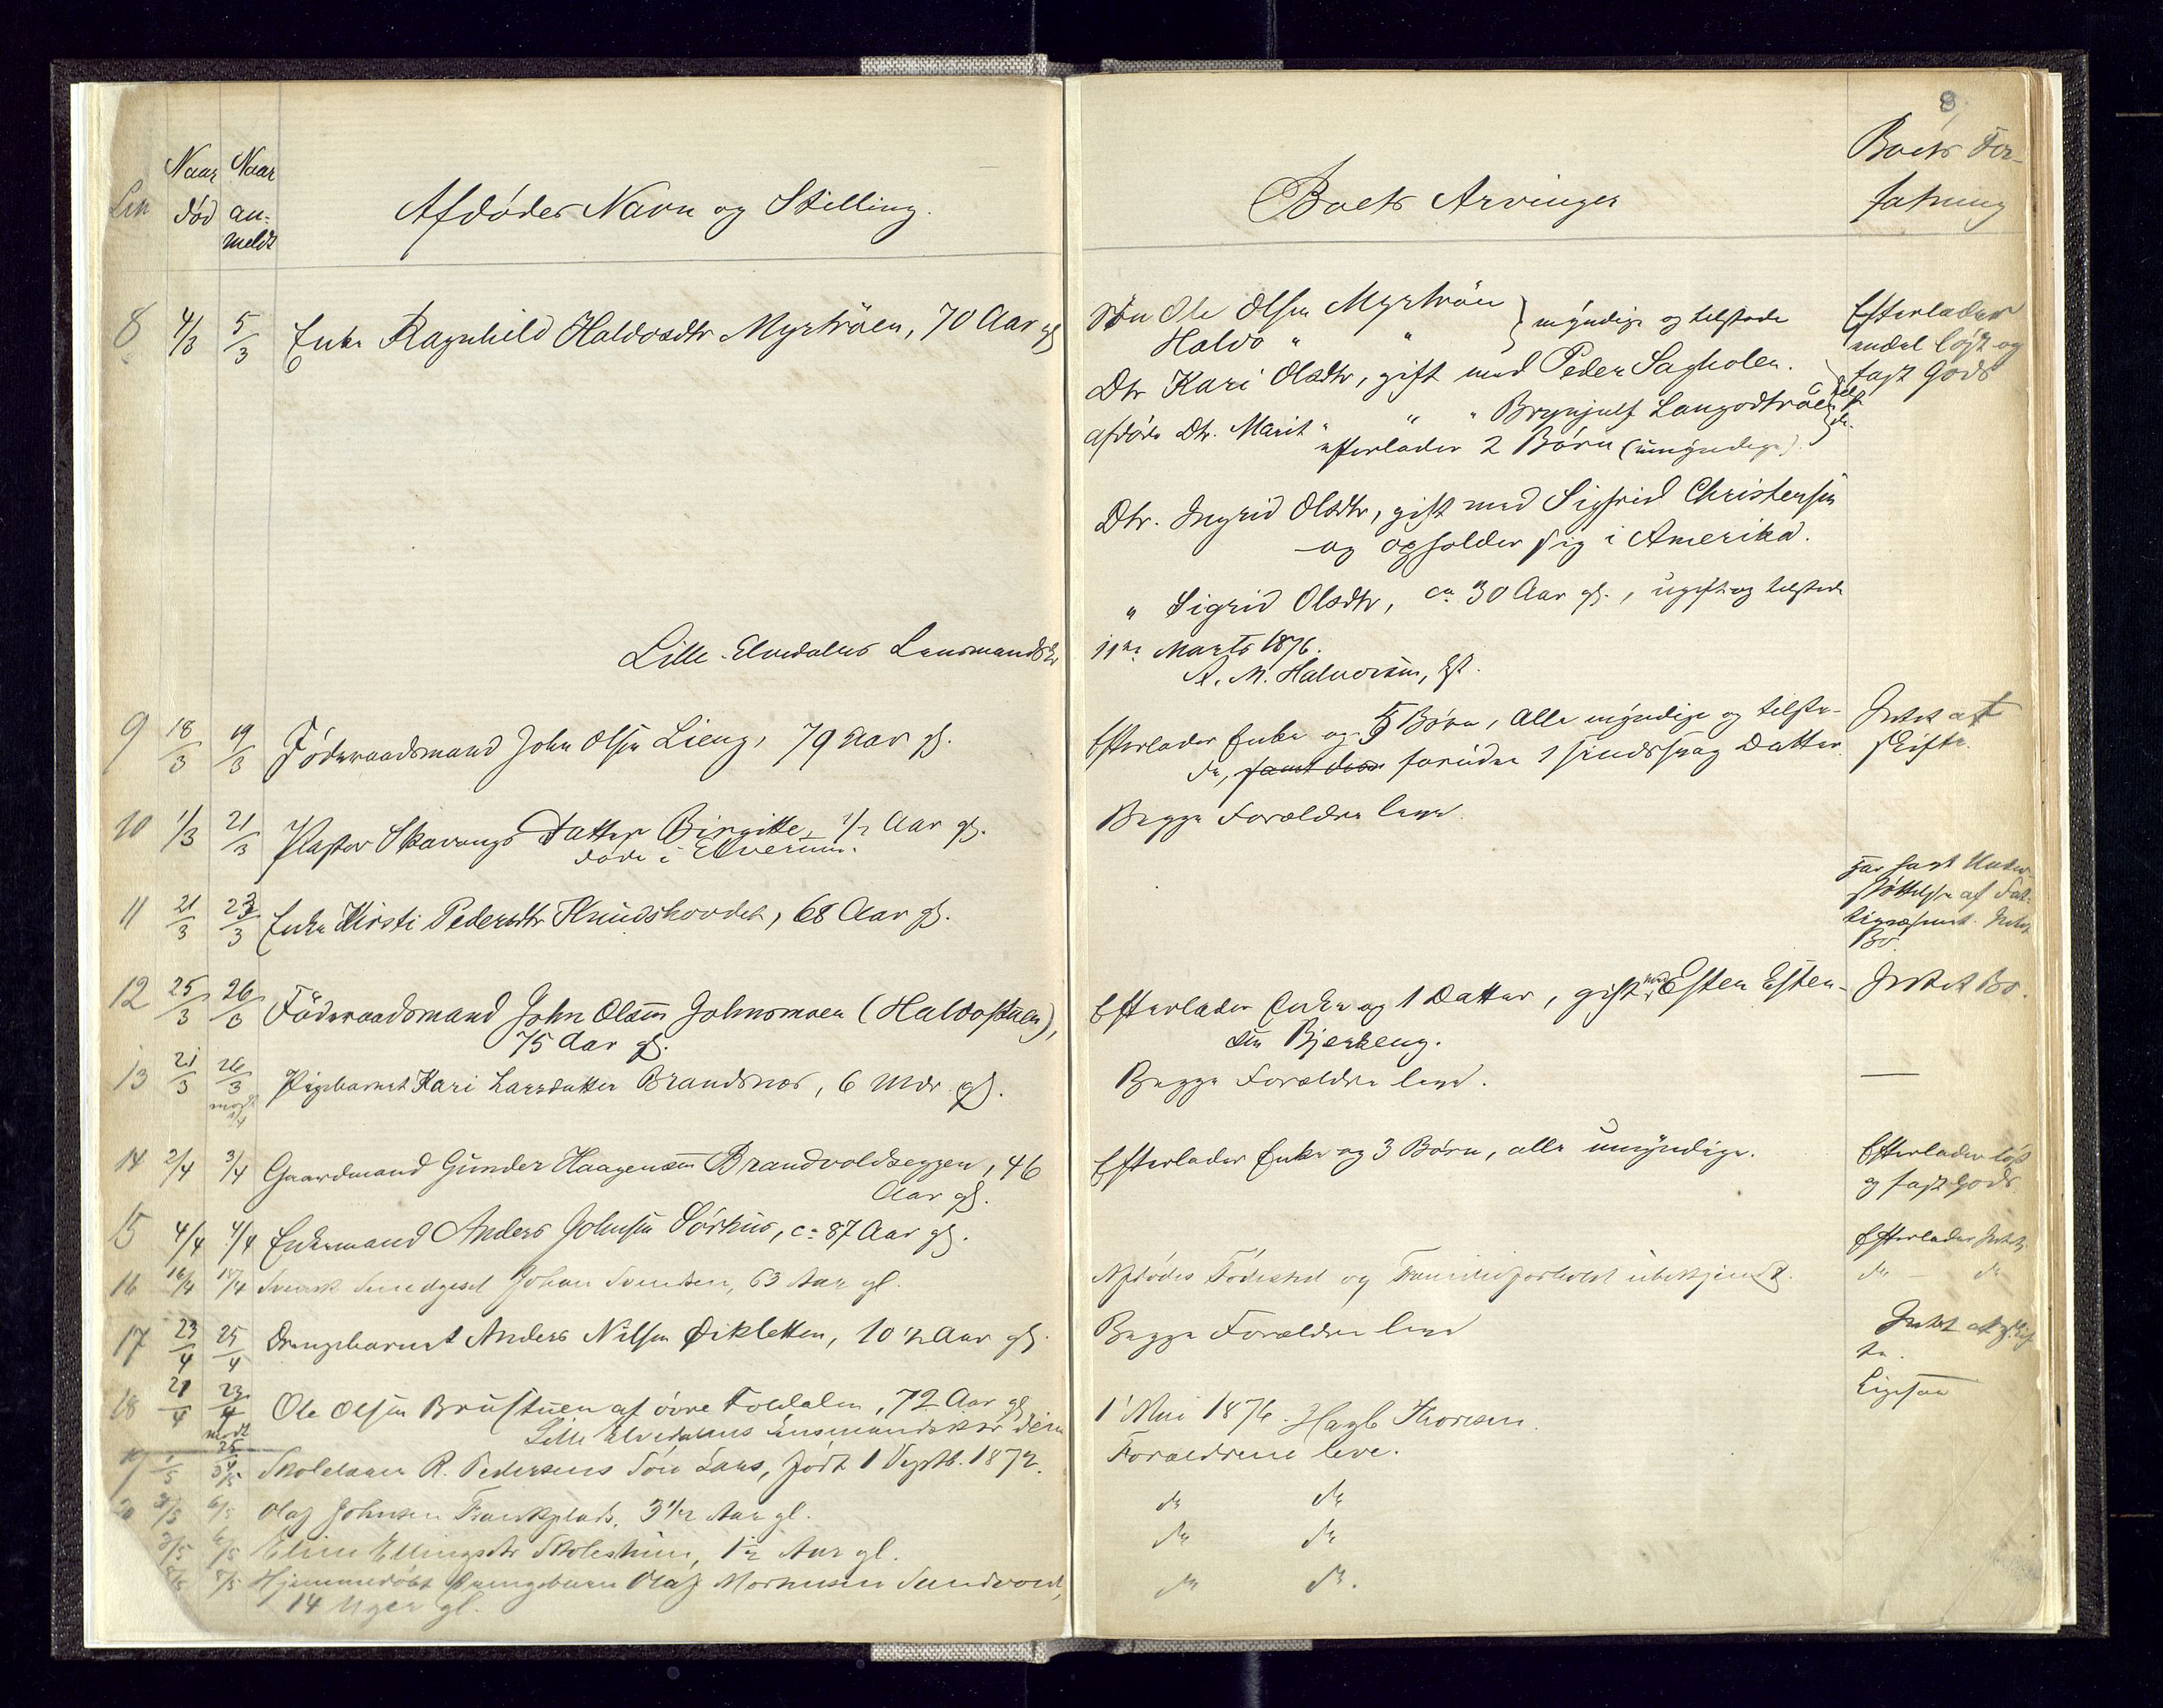 3
Løb
Naar død
Naar anmeldt
Afdødes Navn og Stilling.
Boets Arvinger
Boets Forfatning
8 4/3 5/3 Enke Ragnhild Haldosdtr Myrtrøen, 70 Aar gl
Søn Ole Olsen Myrtrøen } myndige og tilstede
Haldo " "
Dtr Kari Olsdtr, gift med Peder Sagholen.
afdøde Dtr. Marit " " " Brynjulf Langodtrøen
efterlader 2 Børn (umyndige).
Dtr. Ingrid Olsdtr, gift med Sigfrid Christensen
og opholder sig i Amerika.
" Sigrid Olsdtr, ca 30 Aar gl., ugift og tilstede
Efterlader
endel løst og
fast Gods
Lille-Elvedalens Lensmandsk 11te Marts 1876.
A. M. Halvorsen, Kst.
9 18/3 19/3 Føderaadsmand John Olsen Lieng, 79 Aar gl.
Efterlader Enke og 5 Børn, alle myndige og tilste-
de, samt des foruden 1 sindssvag Datter.
Intet at
skifte.
10 1/3 21/3 Pastor Skavangs Datter Birgitte, 1/2 Aar gl.
døde i Elverum.
Begge Forældre leve.
11 21/3 23/3 Enke Kirsti Pedersdtr Knudshovdet, 68 Aar gl.
Har havt Under-
støttelse af Fat-
tigvæsenet. Intet
Bo.
12 25/3 26/3 Føderaadsmand John Olsen Johnsmoen (Haldostuen),
75 Aar gl.
Efterlader Enke og 1 Datter, gift med Esten Esten-
sen Bjerkeng.
Intet Bo.
13 21/3 26/3 modt 1/4 Pigebarnet Kari Larsdatter Brandsnes, 6 Mdr. gl.
Begge Forældre leve.
—
14 2/4 3/4 Gaardmand Gunder Haagensen Brandvoldseggen, 46
Aar gl.
Efterlader Enke og 3 Børn, alle umyndige.
Efterlader løst
og fast Gods.
15 4/4 4/4 Enkemand Anders Johnsen Sørhus, ca 87 Aar gl.
Efterlader Intet.
16 16/4 18/4 Svensk Smedgesel Johan Svendsen, 63 Aar gl.
Afdødes Fødested og Familieforhold ubekjendt.
do — do
17 23/4 25/4 Drengebarnet Anders Nilsen Øikletten, 10 1/2 Aar gl.
Begge Forældre leve
Intet at skif
te.
18 21/4 23/4 modt 25/4 Ole Olsen Brustuen af øvre Foldalen, 72 Aar gl
Ligesaa
Lille Elvedalens Lensmandskontor den 1 Mai 1876. Hagb. Thoresen.
19 1/5 3/5 Skolelærer R. Pedersens Søn Lars, født 1 Septb. 1872.
Forældrene leve.
20 3/5 6/5 Olaf Johnsen Frankplads, 3 1/2 Aar gl.
do do
3/5 6/5 Eline Ellingsdtr Skolestuen, 1 1/2 Aar gl.
do do
8/5 Hjemmedøbt Drengebarn Olaf Mortensen Sundvold,
14 Uger gl.
do do.